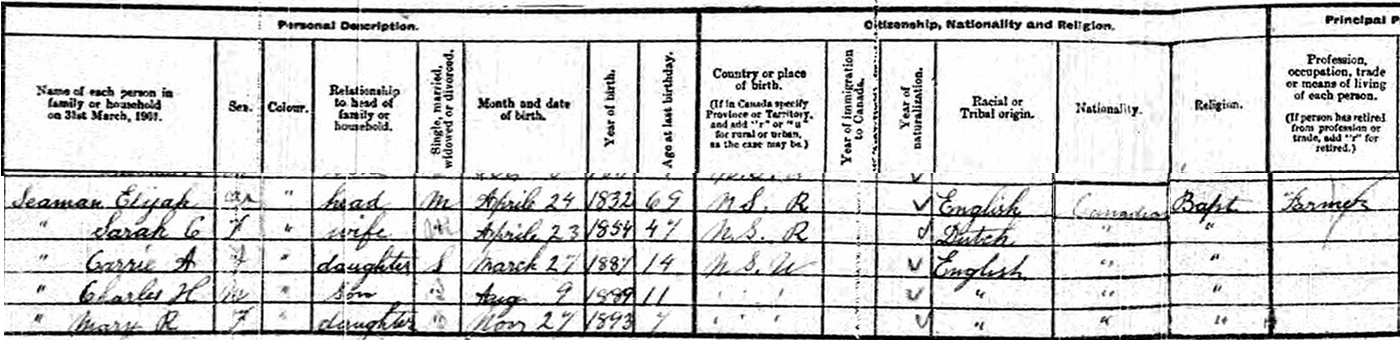 Personal Description. Citizenship, Nationality and Religion. Principal P
Name of each person in family or household on 31st March, 1901.
Sex.
Colour.
Relationship to head of family or household.
Single, married, widowed or divorced.
Month and date of birth.
Year of birth.
Age at last birthday.
Country or place of birth.
(If in Canada specify Province or Territory, and add "r" or "u" for rural or urban, as the case may be.)
Year of immigration to Canada.
Year of naturalization.
Racial or Tribal origin.
Nationality.
Religion.
Profession, occupation, trade or means of living of each person.
(If person has retired from profession or trade, add "r" for retired.)
Seaman Elijah " head M Aprile 24 1832 69 N.S. R ✓ English Canadian Bapt Farmer
" Sarah C F " wife Aprile 23 1854 47 N.S. R ✓ Dutch " "
" Carrie A F " daughter S March 27 1887 14 N.S. U ✓ English " "
" Charles H M " Son " Aug 9 1889 11 " " ✓ " " "
" Mary R F " daughter " Nov 27 1893 7 " " ✓ " " "